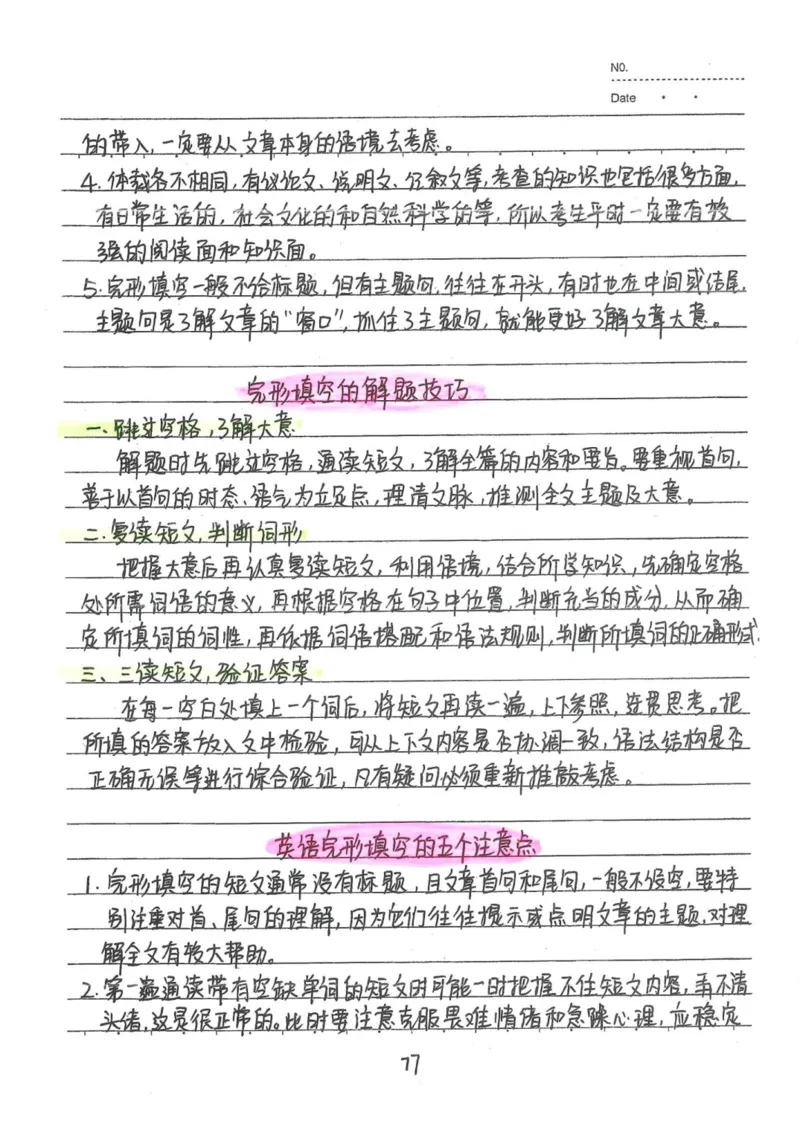 NO.
Date
的带入,一定要从文章本身的语境去考虑。
4.体裁各不相同,有议论文、说明文、记叙文等,考查的知识也包括很多方面,
有日常生活的,社会文化的和自然科学的等,所以考生平时一定要有较
强的阅读面和知识面。
5.完形填空一般不给标题,但有主题句,往往在开头,有时也在中间或结尾,
主题句是了解文章的“窗口”,抓住了主题句,就能更好了解文章大意。
完形填空的解题技巧
一.跳过空格,了解大意
解题时先跳过空格,通读短文,了解全篇的内容和要旨。要重视首句,
善于以首句的时态、语气为立足点,理清文脉,推测全文主题及大意。
二.复读短文,判断词形
把握大意后再认真复读短文,利用语境,结合所学知识,先确定空格
处所需词语的意义,再根据空格在句子中位置,判断充当的成分,从而确
定所填词的词性,再依据词语搭配和语法规则,判断所填词的正确形式.
三、三读短文,验证答案
在每一空白处填上一个词后,将短文再读一遍,上下参照,连贯思考。把
所填的答案放入文中检验,可从上下文内容是否协调一致,语法结构是否
正确无误等进行综合验证,凡有疑问必须重新推敲考虑。
英语完形填空的五个注意点
1.完形填空的短文通常没有标题,且文章首句和尾句,一般不设空,要特
别注重对首、尾句的理解,因为它们往往提示或点明文章的主题,对理
解全文有较大帮助。
2.第一遍通读带有空缺单词的短文时可能一时把握不住短文内容,弄不清
头绪,这是很正常的。此时要注意克服畏难情绪和急躁心理,应稳定
77